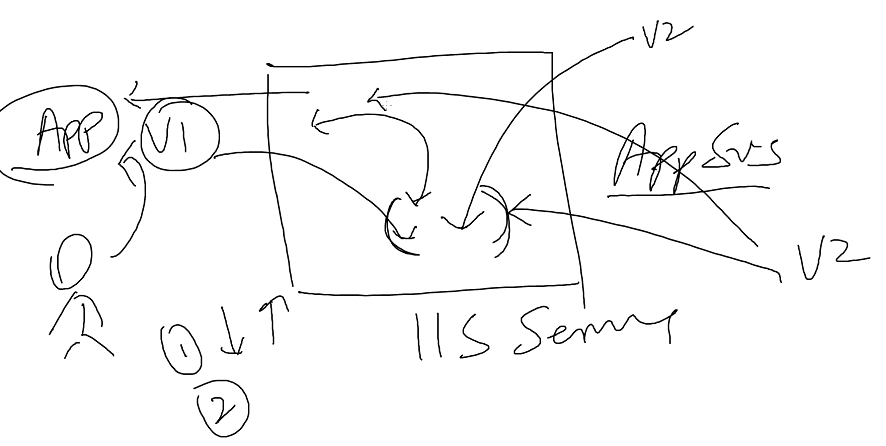 V2
App
V1
App Svs
V2
IIS Server
1
2